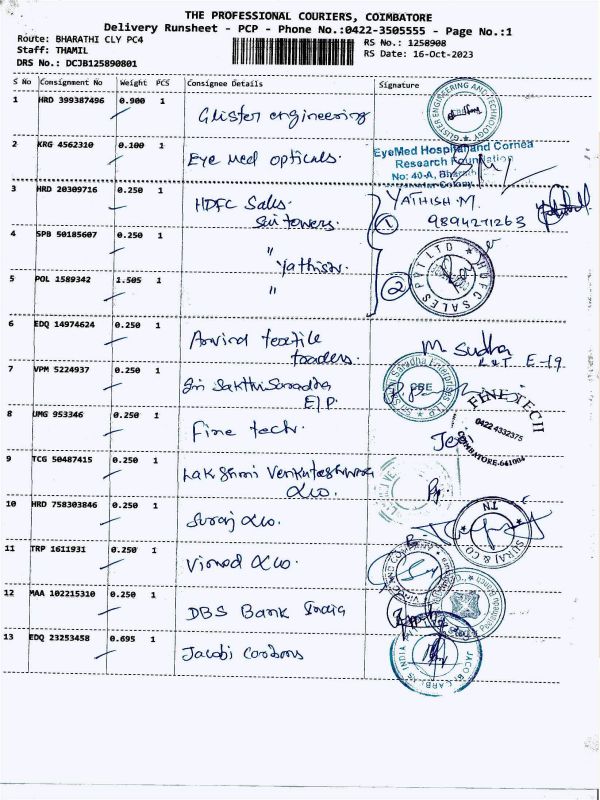 THE PROFESSIONAL COURIERS, COIMBATORE
Delivery Runsheet - PCP - Phone No.:0422-3505555 - Page No.:1
Route: BHARATHI CLY PC4
RS No.: 1258908
Staff: THAMIL
RS Date: 16-Oct-2023
DRS No.: DCJB125890801
S No Consignment No Weight PCS Consignee Details Signature
1 HRD 399387496 0.900 1 Glister engineering
GLISTER ENGINEERING AND TECHNOLOGY
2 KRG 4562310 0.100 1 Eye med opticals.
EyeMed Hospital and Cornea
Research Foundation
No: 40-A, Bharathi
Colony
3 HRD 20309716 0.250 1 HDFC Sales.
Sri towers.
YATHISH.M
① 9894271263
4 SPB 50185607 0.250 1 "
Yathish.
② HDFC SALES PVT LTD
5 POL 1589342 1.505 1 "
6 EDQ 14974624 0.250 1 Arvind textile
traders.
M Sudha
R&T E-19
7 VPM 5224937 0.250 1 Sri Sakthi Saradha
E/P.
Saradha Enterprises
CBE
8 UMG 953346 0.250 1 Fine tech.
FINE TECH
0422 4332375
COIMBATORE-641004
9 TCG 50487415 0.250 1 Lakshmi Venkateshwara
&co.
10 HRD 758303846 0.250 1 Suraj &co.
SURAJ & CO.
TN
11 TRP 1611931 0.250 1 Vinod &co.
VINOD AND COMPANY
12 MAA 102215310 0.250 1 DBS Bank India
13 EDQ 23253458 0.695 1 Jacobi Carbons
JACOBI CARBONS INDIA